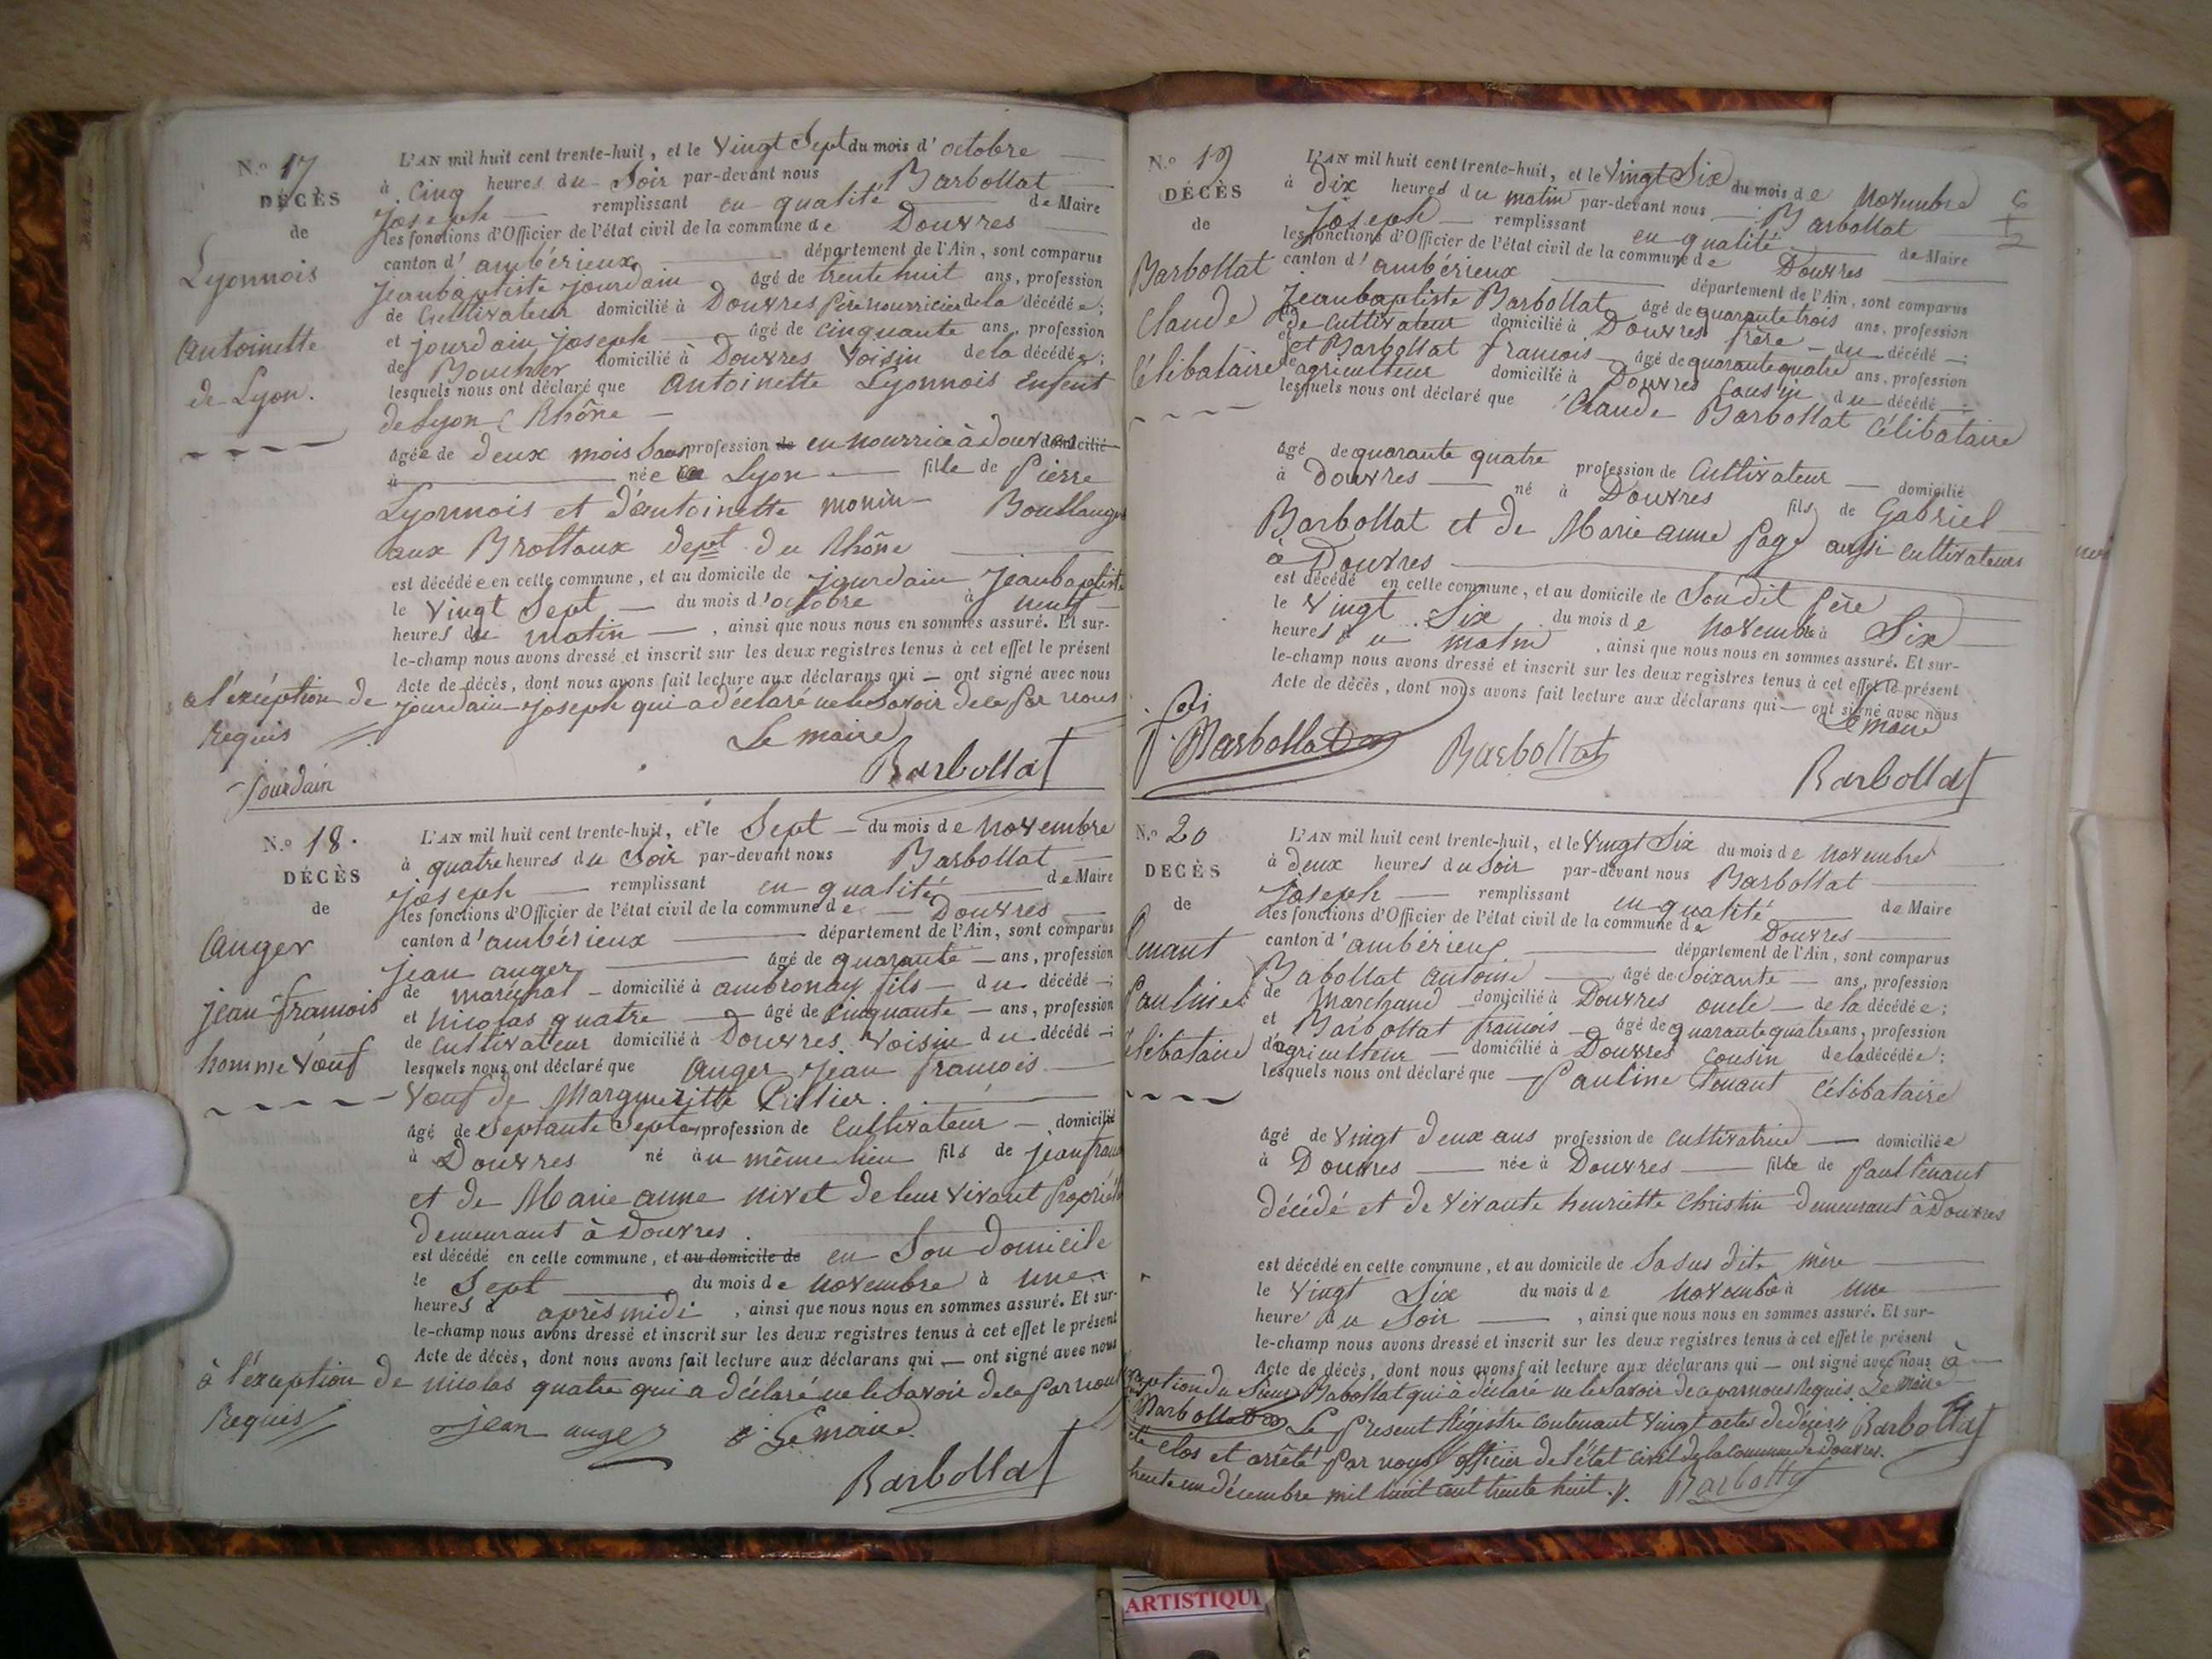 N.o 17
DÉCÈS
de
Lyonnois
Antoinette
de Lyon.
L'AN mil huit cent trente-huit, et le Vingt Sept du mois d'octobre
à Cinq heures du Soir par-devant nous Barbollat
Joseph remplissant en qualité de Maire
les fonctions d'Officier de l'état civil de la commune de Douvres
canton d'ambérieux département de l'Ain, sont comparus
Jeanbaptiste jourdain âgé de trente huit ans, profession
de Cultivateur domicilié à Douvres père nourricier de la décédée;
et jourdain joseph âgé de cinquante ans, profession
de Boucher domicilié à Douvres Voisin de la décédée;
lesquels nous ont déclaré que Antoinette Lyonnois Enfent
de Lyon (Rhône
âgée de deux mois Sans profession de en nourrice à Douvres domicilié
à née à Lyon fille de Pierre
Lyonnois et d'antoinette monin Boullanger
aux Brottaux dept du Rhône
est décédée en cette commune, et au domicile de jourdain Jeanbaptiste
le Vingt Sept du mois d'octobre à neuf
heures du matin, ainsi que nous nous en sommes assuré. Et sur-
le-champ nous avons dressé et inscrit sur les deux registres tenus à cet effet le présent
Acte de décès, dont nous avons fait lecture aux déclarans qui ont signé avec nous
a l'exéption de jourdain joseph qui a déclaré ne le Savoir de ce par nous
Requis
Le maire
Jourdain
Barbollat
N.o 18.
DÉCÈS
de
Auger
jean françois
homme Vœuf
L'AN mil huit cent trente-huit, et le Sept du mois de Novembre
à quatre heures du Soir par-devant nous Barbollat
joseph remplissant en qualité de Maire
les fonctions d'Officier de l'état civil de la commune de Douvres
canton d'ambérieux département de l'Ain, sont comparus
jean auger âgé de quarante ans, profession
de maréchal domicilié à ambronay fils du décédé;
et Nicolas quatre âgé de Cinquante ans, profession
de cultivateur domicilié à Douvres Voisin du décédé;
lesquels nous ont déclaré que Auger jean françois
Vœuf de Margueritte
âgé de Septante Sept ans profession de Cultivateur domicilié
à Douvres né au même lieu fils de jean fran
et de Marie anne nivet de leur vivant Propriét
demeurant à Douvres.
est décédé en cette commune, et au domicile de en Son domicile
le Sept du mois de Novembre à une
heures d après midi, ainsi que nous nous en sommes assuré. Et sur-
le-champ nous avons dressé et inscrit sur les deux registres tenus à cet effet le présent
Acte de décès, dont nous avons fait lecture aux déclarans qui ont signé avec nous
à l'exéption de nicolas quatre qui a déclaré ne le Savoir de ce par nous
Requis
jean auger Le maire
Barbollat
N.o 19
DÉCÈS
de
Barbollat
Claude
Célibataire
L'AN mil huit cent trente-huit, et le Vingt Six du mois de Novembre
à Dix heures du matin par-devant nous Barbollat
Joseph remplissant en qualité de Maire
les fonctions d'Officier de l'état civil de la commune de Douvres
canton d'ambérieux département de l'Ain, sont comparus
Jeanbaptiste Barbollat âgé de quarante trois ans, profession
de cultivateur domicilié à Douvres frère du décédé;
et Barbollat françois âgé de quarante quatre ans, profession
de agriculteur domicilié à Douvres Cousin du décédé;
lesquels nous ont déclaré que Claude Barbollat Célibataire
âgé de quarante quatre profession de Cultivateur domicilié
à Douvres né à Douvres fils de Gabriel
Barbollat et de Marie anne Page aussi cultivateurs
à Douvres
est décédé en cette commune, et au domicile de Son dit Père
le Vingt Six du mois de Novembre à Six
heures du matin, ainsi que nous nous en sommes assuré. Et sur-
le-champ nous avons dressé et inscrit sur les deux registres tenus à cet effet le présent
Acte de décès, dont nous avons fait lecture aux déclarans qui ont signé avec nous
Le maire
Barbollat Barbollat Barbollat
N.o 20
DECÈS
de
Pauline
célibataire
L'AN mil huit cent trente-huit, et le Vingt Six du mois de Novembre
à deux heures du Soir par-devant nous Barbollat
Joseph remplissant en qualité de Maire
les fonctions d'Officier de l'état civil de la commune de Douvres
canton d'ambérieux département de l'Ain, sont comparus
Babollat antoine âgé de Soixante ans, profession
de Marchand domicilié à Douvres oncle de la décédée;
et Barbollat françois âgé de quarante quatre ans, profession
d'agriculteur domicilié à Douvres Cousin de la décédée;
lesquels nous ont déclaré que Pauline Tenant Célibataire
âgé de Vingt deux ans profession de cultivatrice domiciliée
à Douvres née à Douvres fille de Paul Tenant
décédé et de vivante henriette Christin demeurant à Douvres
est décédé en cette commune, et au domicile de Sa sus dite mère
le Vingt Six du mois de Novembre à une
heure du Soir, ainsi que nous nous en sommes assuré. Et sur-
le-champ nous avons dressé et inscrit sur les deux registres tenus à cet effet le présent
Acte de décès, dont nous avons fait lecture aux déclarans qui ont signé avec nous à
eption du Sieur Babollat qui à déclaré ne le Savoir de ce par nous Requis. Le maire
Barbollat Le Présent Régistre contenant Vingt actes de décès Barbollat
été clos et arrêté Par nous officier de l'état civil de la commune de Douvres.
trente un décembre mil huit cent trente huit. Barbollat
ARTISTIQU